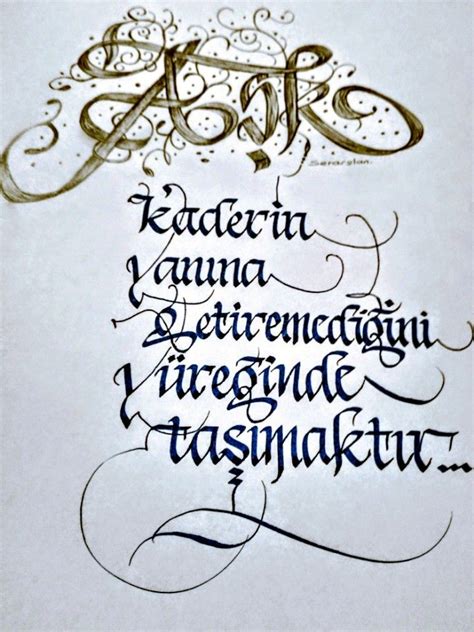 Aşk
serarslan.
kaderin
yanına
getiremediğini
yüreğinde
taşımaktır...